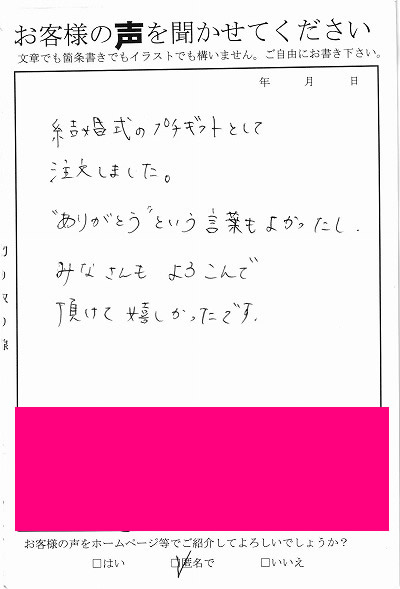 お客様の声を聞かせてください
文章でも箇条書きでもイラストでも構いません。ご自由にお書き下さい。
年 月 日
結婚式のプチギフトとして
注文しました。
"ありがとう"という言葉もよかったし、
みなさんも よろこんで
頂けて嬉しかったです。
お客様の声をホームページ等でご紹介してよろしいでしょうか?
□はい ☑匿名で □いいえ